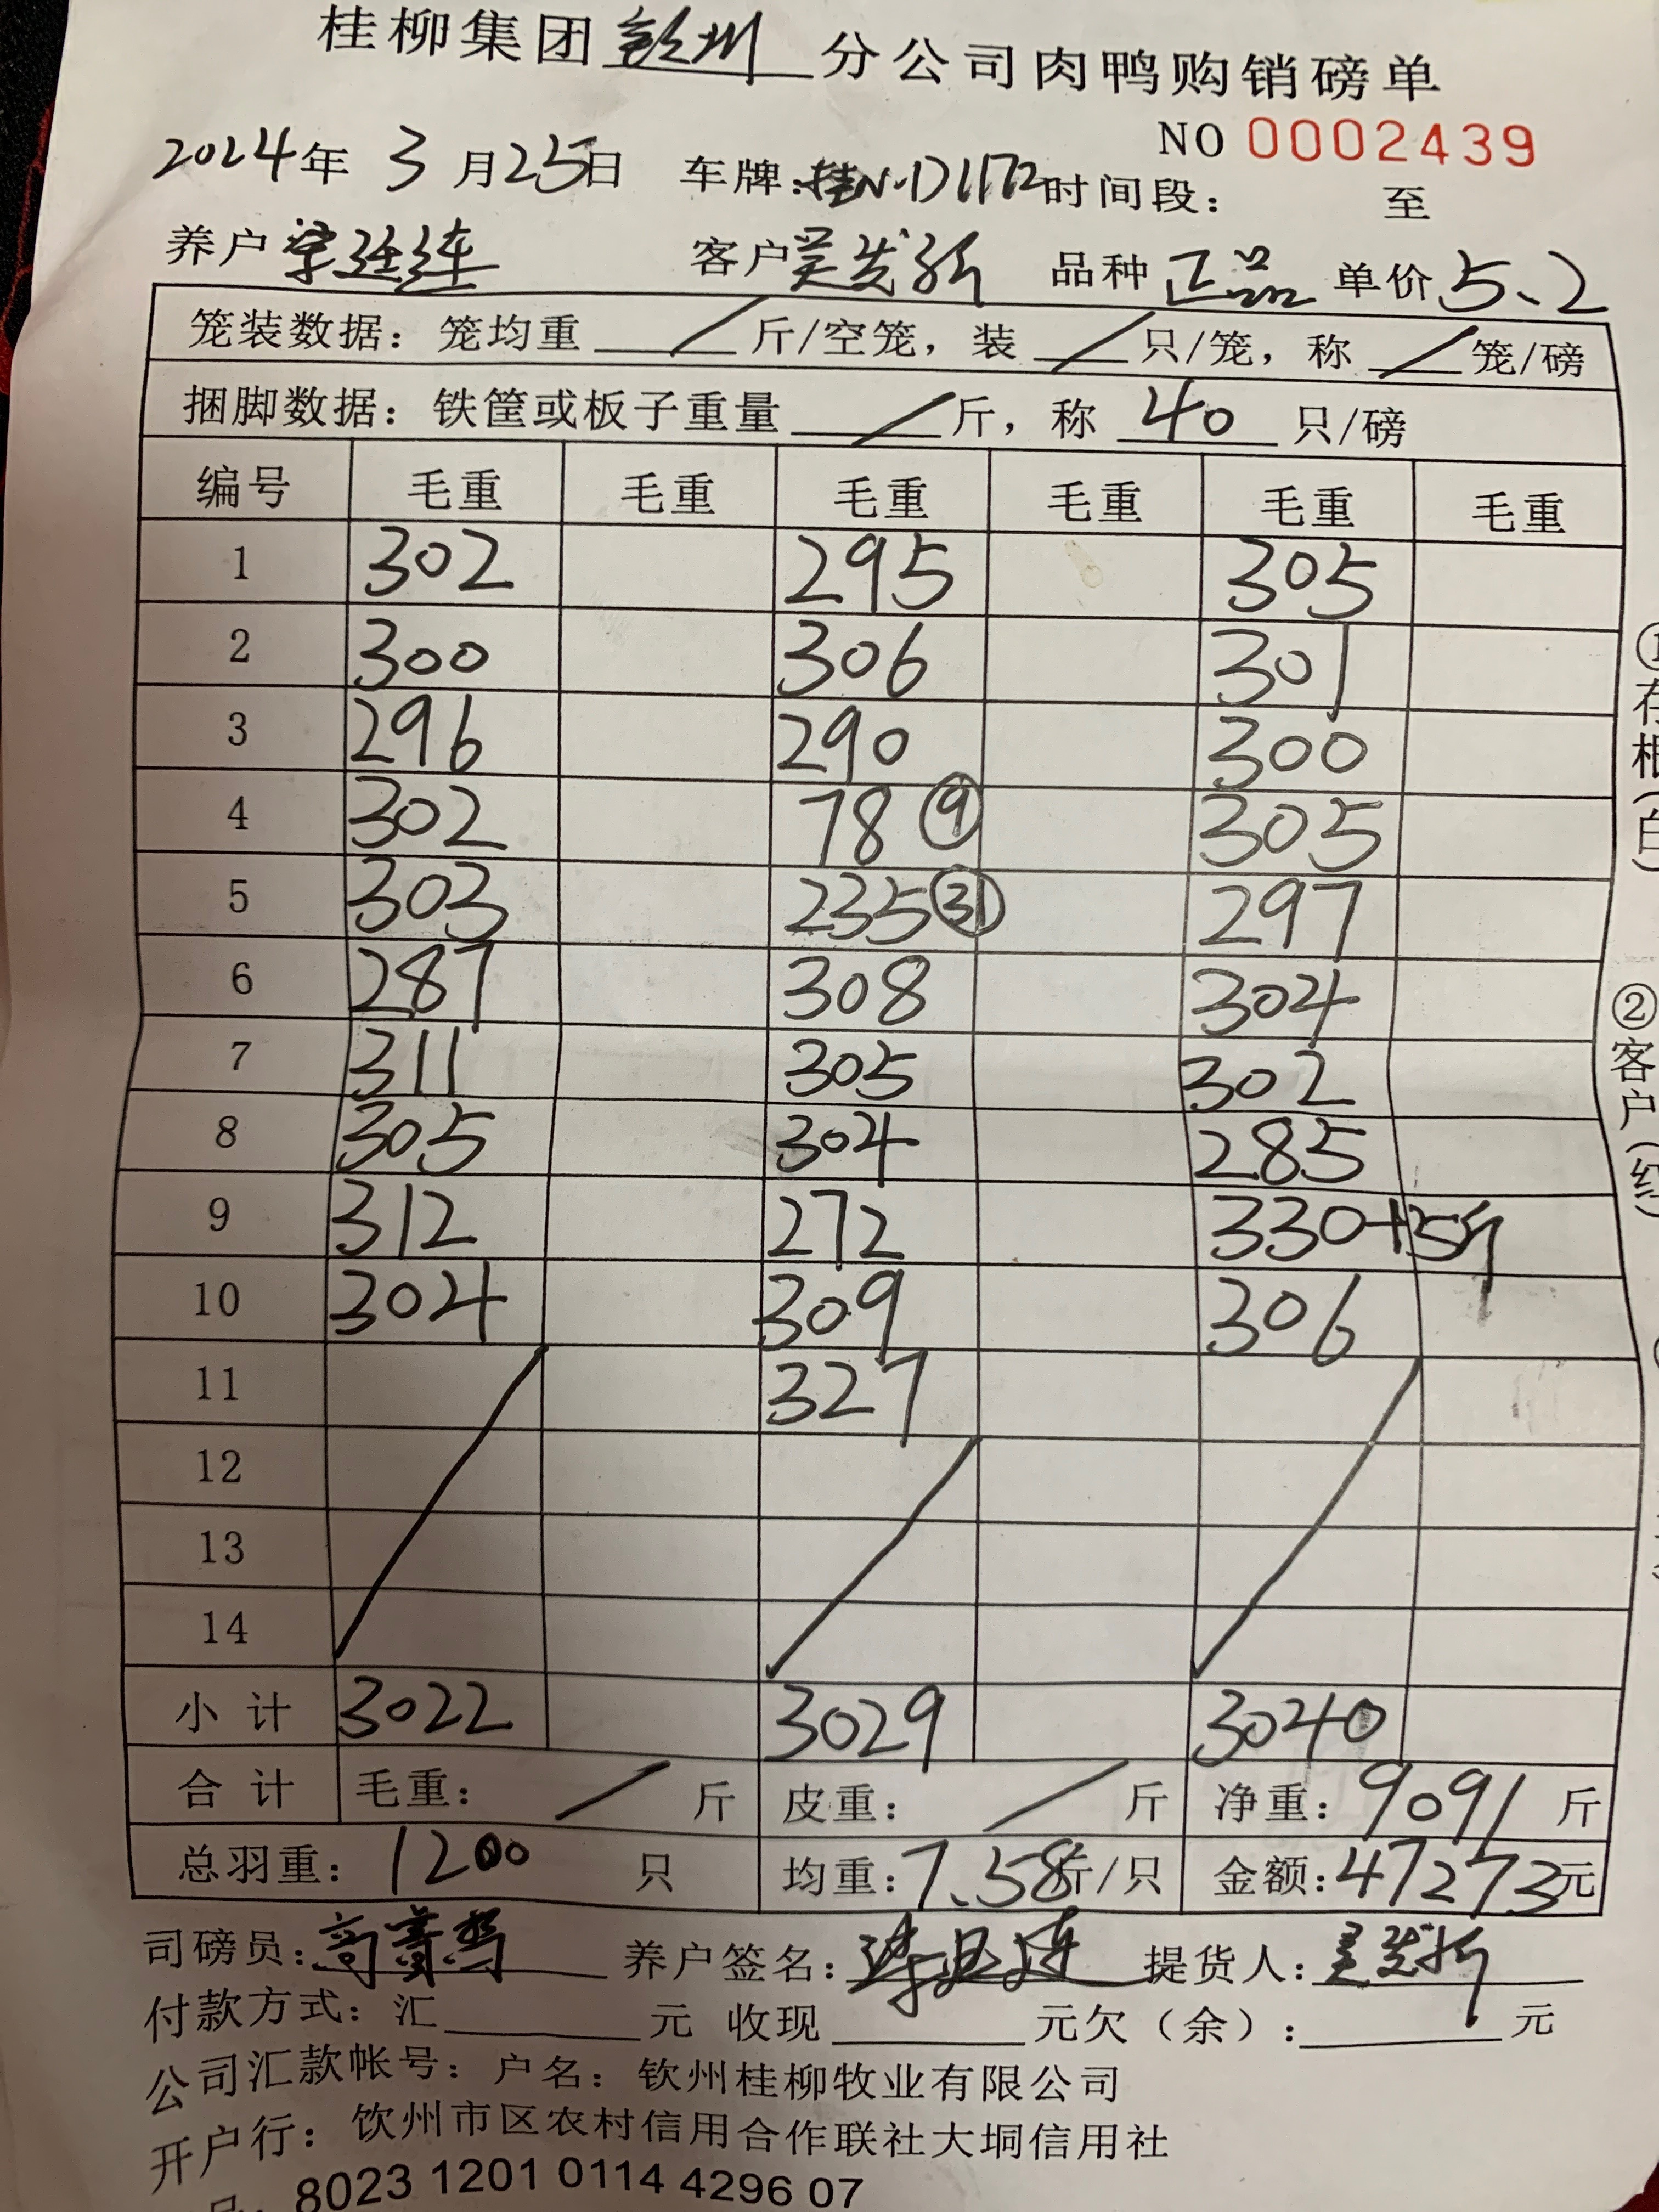 桂柳集团钦州分公司肉鸭购销磅单
NO 0002439
2024年 3月25日 车牌:桂N·D1172时间段: 至
养户 客户 品种 正品 单价5、2
笼装数据: 笼均重 / 斤/空笼, 装 / 只/笼, 称 / 笼/磅
捆脚数据: 铁筐或板子重量 / 斤, 称 40 只/磅
编号 毛重 毛重 毛重 毛重 毛重 毛重
1 302 295 305
2 300 306 301
3 296 290 300
4 302 78 ⑨ 305
5 303 235 ㉛ 297
6 287 308 304
7 311 305 302
8 305 304 285
9 312 272 330+35斤
10 304 309 306
11 327
12
13
14
小计 3022 3029 3040
合计 毛重: / 斤 皮重: / 斤 净重: 9091 斤
总羽重: 1200 只 均重: 7.58斤/只 金额: 47273元
司磅员: 养户签名: 提货人:
付款方式: 汇 元 收现 元欠(余): 元
公司汇款帐号: 户名: 钦州桂柳牧业有限公司
开户行: 饮州市区农村信用合作联社大垌信用社
8023 1201 0114 4296 07
①存根(白)
②客户(红)